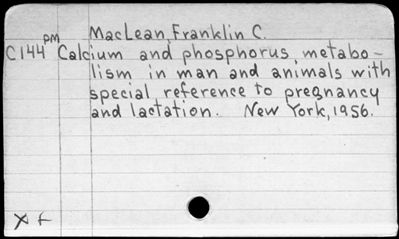 MacLean, Franklin C.
pm
C144 Calcium and phosphorus metabo-
lism in man and animals with
special reference to pregnancy
and lactation. New York, 1956.